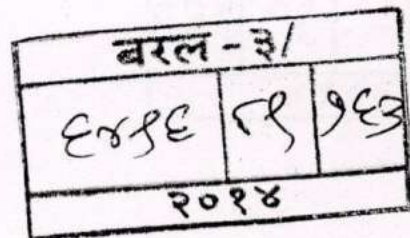 बरल - ३/
६४९६ ८९ १६३
२०१४